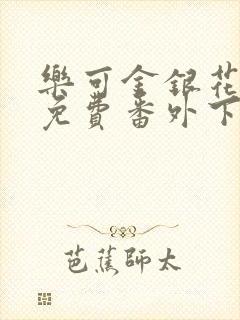 樂可金銀花
免費番外下
芭蕉師太